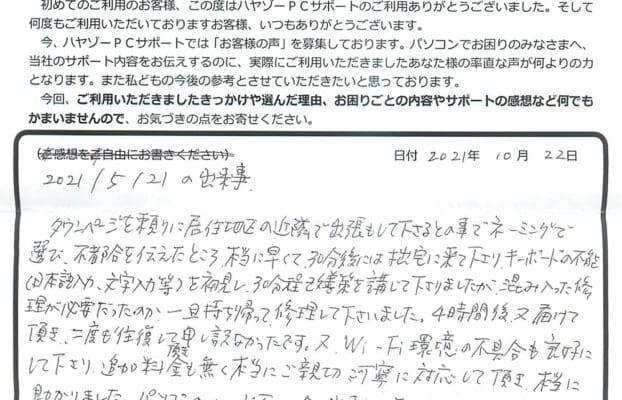 初めてのご利用のお客様、この度はハヤゾーPCサポートのご利用ありがとうございました。そして
何度もご利用いただいておりますお客様、いつもありがとうございます。
今、ハヤゾーPCサポートでは「お客様の声」を募集しております。パソコンでお困りのみなさまへ、
当社のサポート内容をお伝えするのに、実際にご利用いただきましたあなた様の率直な声が何よりの力
となります。また私どもの今後の参考とさせていただきたいと思っております。
今回、ご利用いただきましたきっかけや選んだ理由、お困りごとの内容やサポートの感想など何でも
かまいませんので、お気づきの点をお寄せください。
(ご感想をご自由にお書きください) 日付 2021年 10月 22日
2021/5/21の出来事
タウンページを頼りに居住地区の近隣で出張もして下さるとの事でネーミングで
選び、不都合を伝えたところ、本当に早くて、30分後には拙宅に来て下さり、キーボードの不能
(日本語入力、文字入力等)を初見し、30分程善策を講じて下さりましたが、混み入った修
理が必要だったのか、一旦持ち帰って、修理して下さいました。4時間後、又届けて
頂き、二度も往復して頂き申し訳なかったです。又、Wi-Fi環境の不具合も良好に
して下さり、追加料金も無く本当にご親切、丁寧に対応して頂き、本当に
助かりました。パソコン